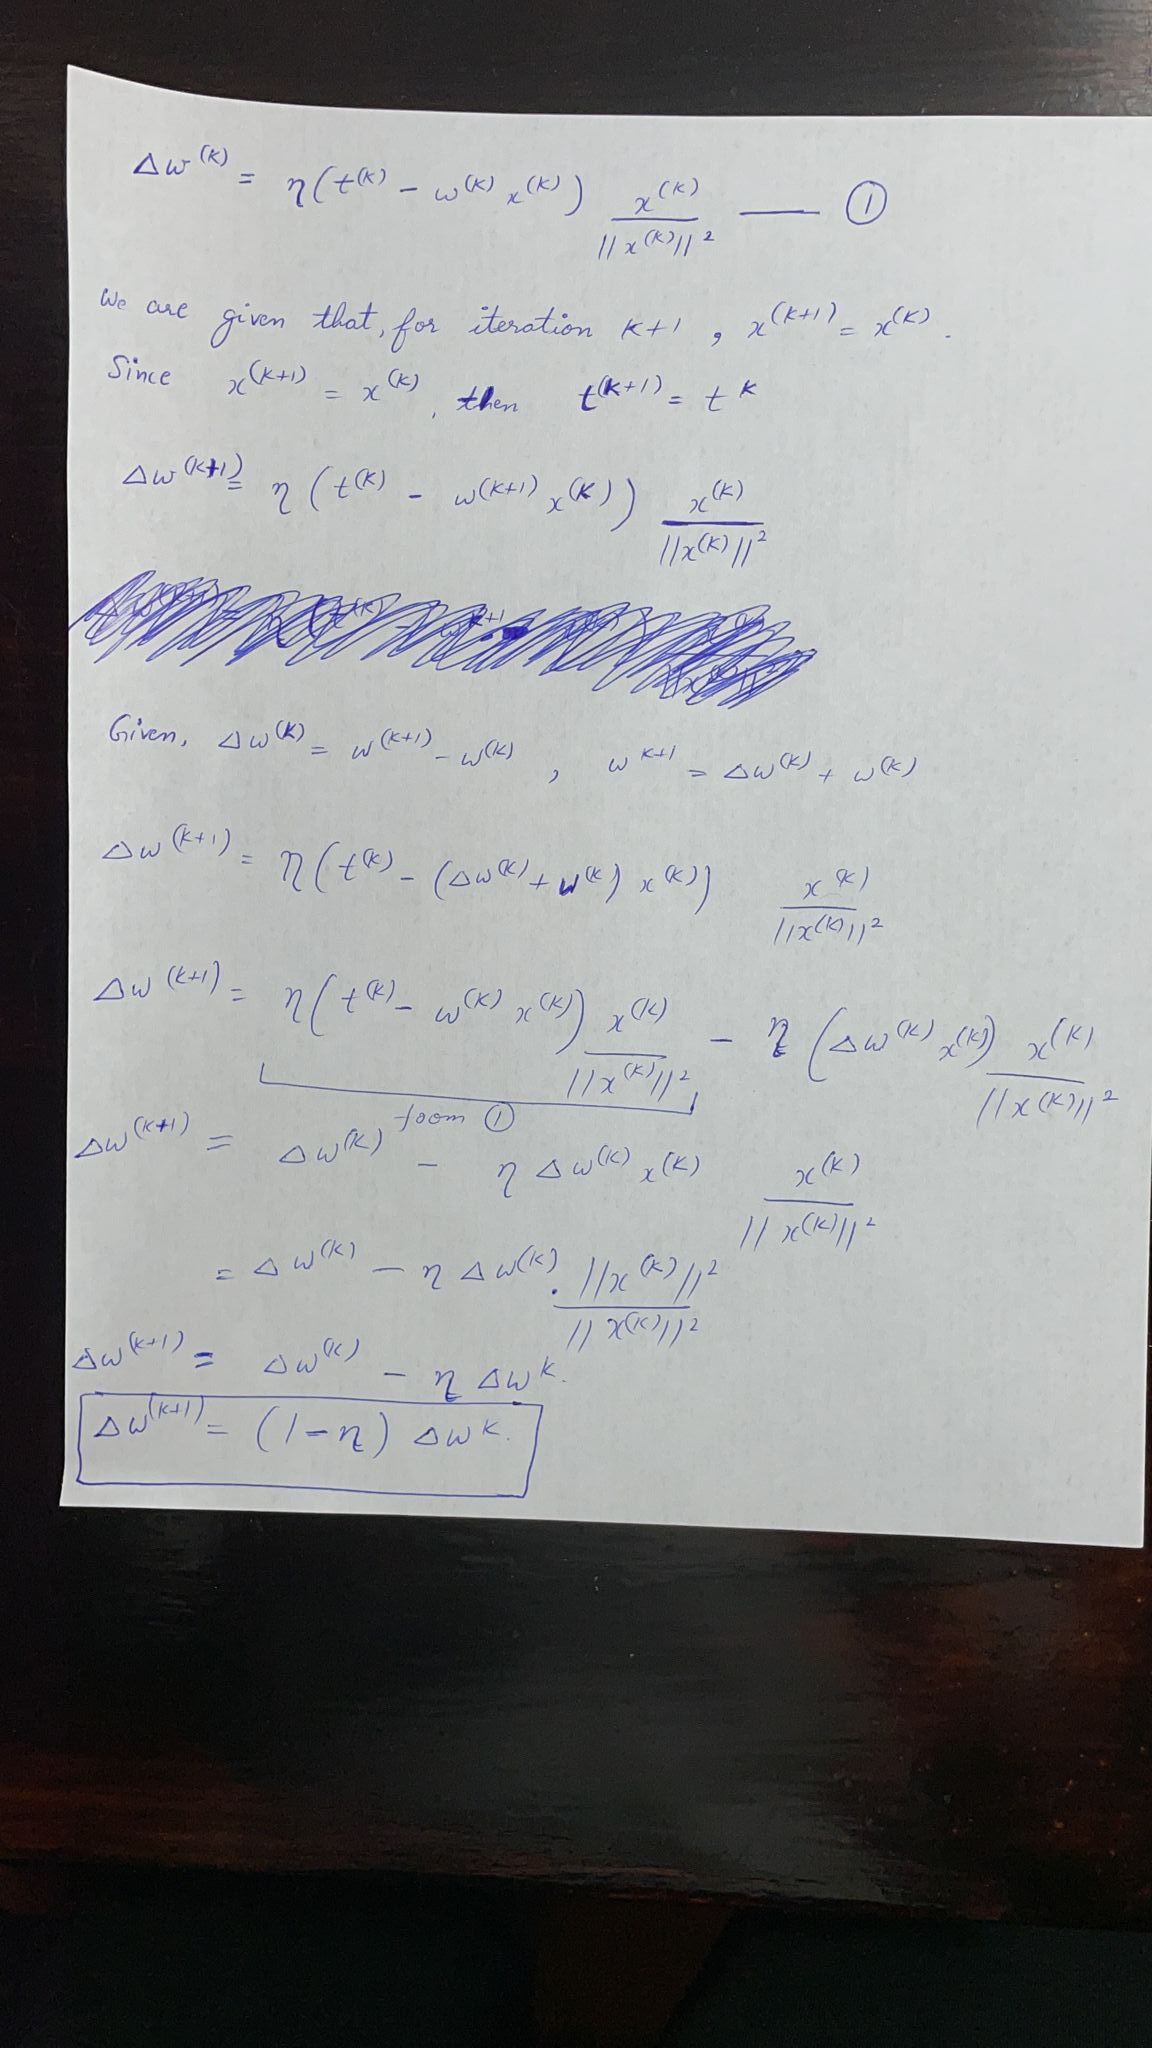 Δw^(k) = η(t^(k) - w^(k) x^(k)) x^(k) / ||x^(k)||² —— ①
We are given that, for iteration k+1, x^(k+1) = x^(k).
Since x^(k+1) = x^(k), then t^(k+1) = t^k
Δw^(k+1) = η(t^(k) - w^(k+1) x^(k)) x^(k) / ||x^(k)||²
Given, Δw^(k) = w^(k+1) - w^(k), w^k+1 = Δw^(k) + w^(k)
Δw^(k+1) = η(t^(k) - (Δw^(k) + w^(k)) x^(k)) x^(k) / ||x^(k)||²
Δw^(k+1) = η(t^(k) - w^(k) x^(k)) x^(k) / ||x^(k)||² - η(Δw^(k) x^(k)) x^(k) / ||x^(k)||²
from ①
Δw^(k+1) = Δw^(k) - η Δw^(k) x^(k) x^(k) / ||x^(k)||²
= Δw^(k) - η Δw^(k) . ||x^(k)||² / ||x^(k)||²
Δw^(k+1) = Δw^(k) - η Δw^k.
Δw^(k+1) = (1-η) Δw^k.